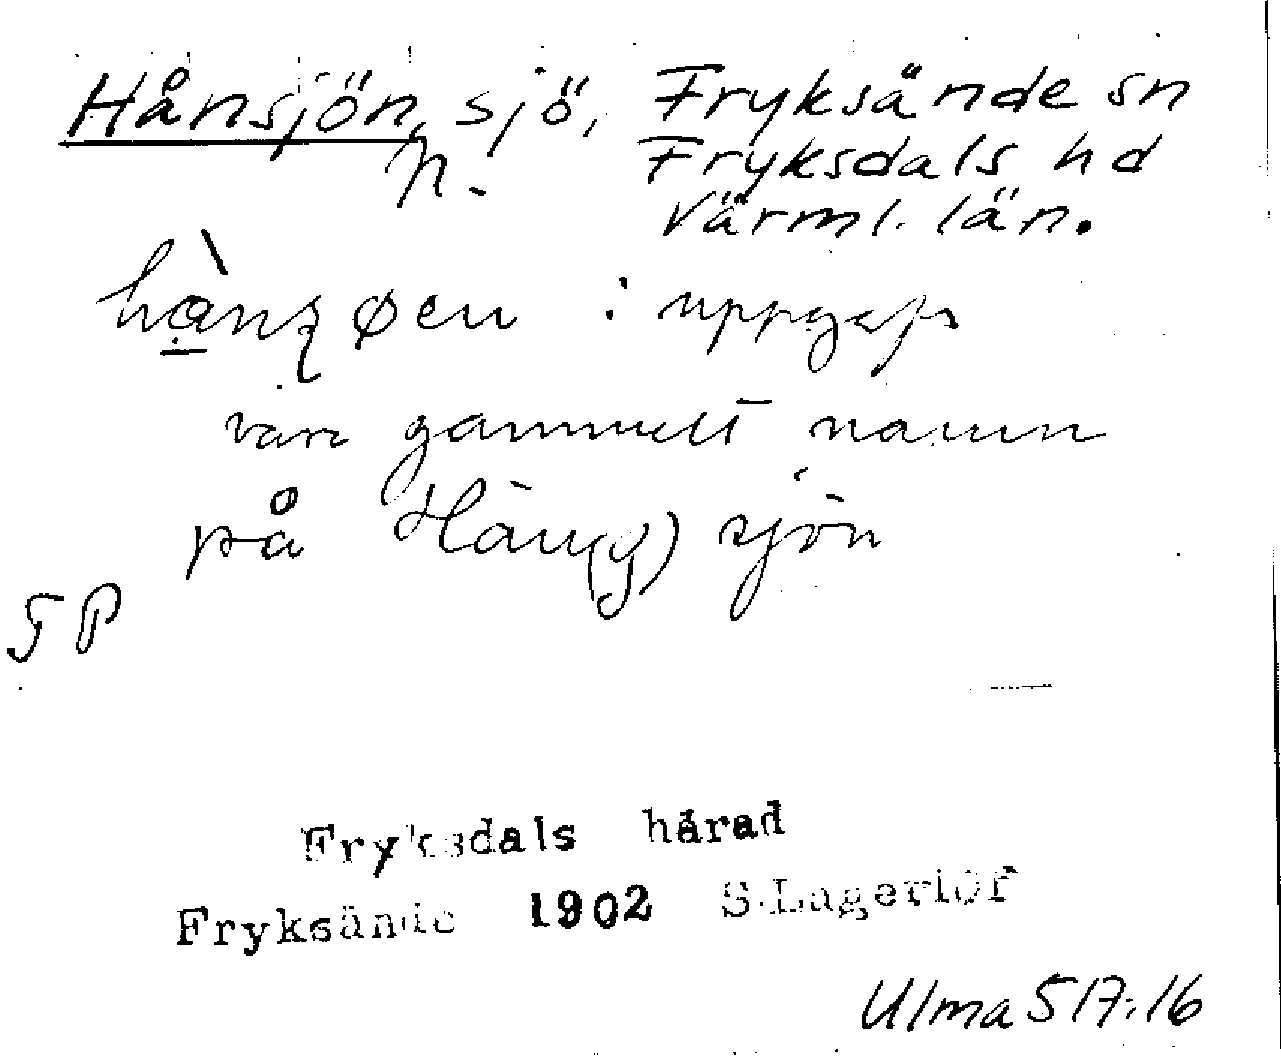 Hånsjön, sjö, Fryksände sn
n. Fryksdals hd
Värml. län.
: uppgafs
vara gammelt namn
på Hån(g)sjön
Fryksdals härad
Fryksände 1902 S.Lagerlöf
Ulma 517:16